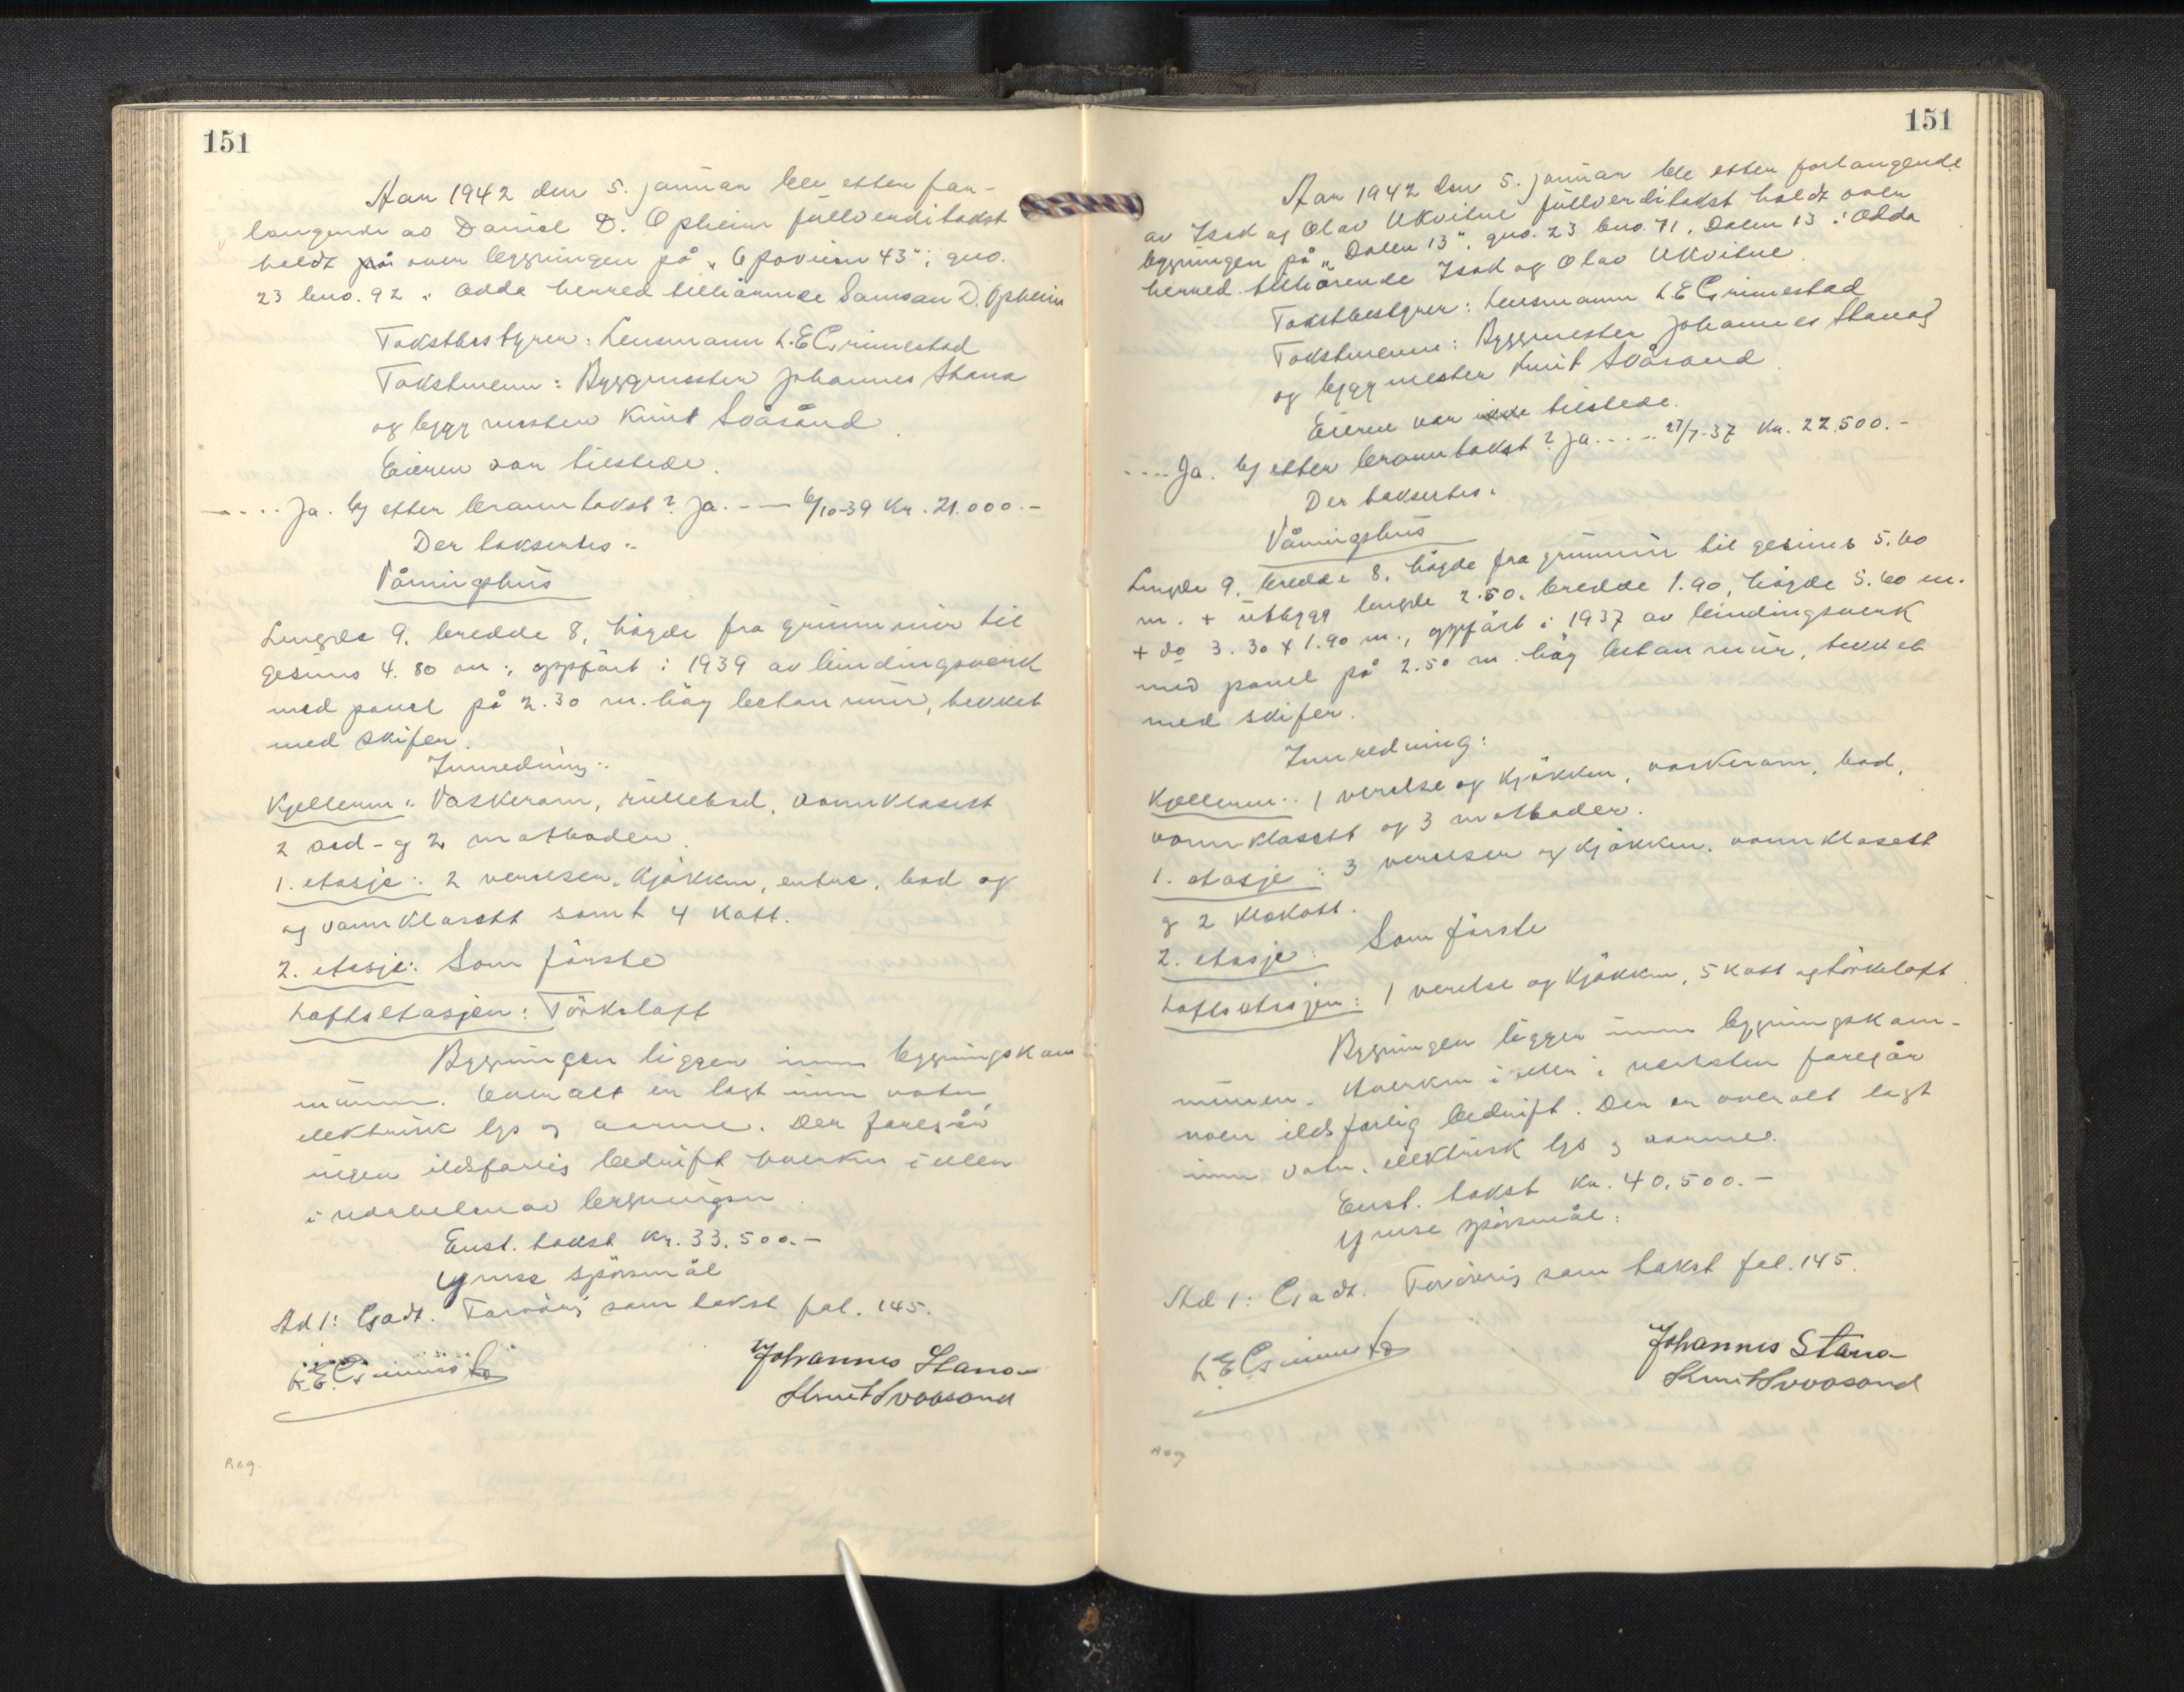 151
Aar 1942 den 5. januar ble etter for-
langende av Daniel D. Opheim fullverditakst
holdt på over bygningen på " 43", gno.
23 bno. 92 i Odda herred tilhörende Samson D. Opheim
Takstbestyrer: Lensmann L.E Grimestad
Takstmenn: Byggmester Johannes Stana
og byggmester Knut Svåsand.
Eieren var tilstede.
- - - - Ja. b) etter branntakst? Ja. - - 6/10-39 Kr. 21.000.-
Der taksertes:
Våningshus
Lengde 9, bredde 8, högde fra grunnmur til
gesims 4.80 m., oppfört i 1939 av bindingsverk
med panel på 2.30 m. höy betonmur, tekket
med skifer.
Innredning:
Kjelleren: Vaskerom, rullebod, vannklosett
2 ved- og 2 matboder.
1. etasje: 2 verelser, Kjökken, entre, bad og
og vannklosett samt 4 Kott.
2. etasje: Som förste
Loftsetasjen: Törkeloft
Bygningen ligger innen bygningskom
munen. Overalt er lagt inn vatn,
elektrisk lys og varme. Der foregår
ingen ildsfarlig bedrift hverken i eller
i nærheten av bygningen.
Enst. takst Kr. 33.500.-
Ymse spörsmål
Ad 1: Godt. Forövrig som takst fol. 145.
L.E Grimestad
Johannes Stana
Knut Svaasand
Reg.
151
Aar 1942 den 5. januar ble etter forlangende
av Isak og Olav Ukvitne fullverditakst holdt over
bygningen på "Dalen 13", gno. 23 bno. 71, Dalen 13 i Odda
herred tilhörende Isak og Olav Ukvitne.
Takstbestyrer: Lensmann L.E Grimestad
Takstmenn: Byggmester Johannes Stana
og byggmester Knut Svåsand.
Eieren var ikke tilstede.
- - - - Ja. b) etter branntakst? Ja. - - - 27/7-37 Kr. 22.500.-
Der taksertes:
Våningshus
Lengde 9, bredde 8, högde fra grunnmur til gesims 5.60
m. + utbygg lengde 2.50, bredde 1.90, högde 5.60 m.
+ do 3.30 x 1.90 m., oppfört i 1937 av bindingsverk
med panel på 2.50 m. höy betonmur, tekket
med skifer.
Innredning:
Kjelleren: 1 verelse og Kjökken, vaskerom, bad,
vannklosett og 3 matboder.
1. etasje: 3 verelser og Kjökken, vannklosett
og 2 Klekott.
2. etasje: Som förste
Loftsetasjen: 1 verelse og Kjökken, 5 Kott og törkeloft
Bygningen ligger innen bygningskom-
munen. Hverken i eller i nærheten foregår
noen ildsfarlig bedrift. Der er overalt lagt
inn vatn, elektrisk lys og varme.
Enst. takst Kr. 40.500.-
Ymse spörsmål:
Ad 1: Godt. Forövrig som takst fol. 145.
L.E Grimestad
Johannes Stana
Knut Svaasand
Reg